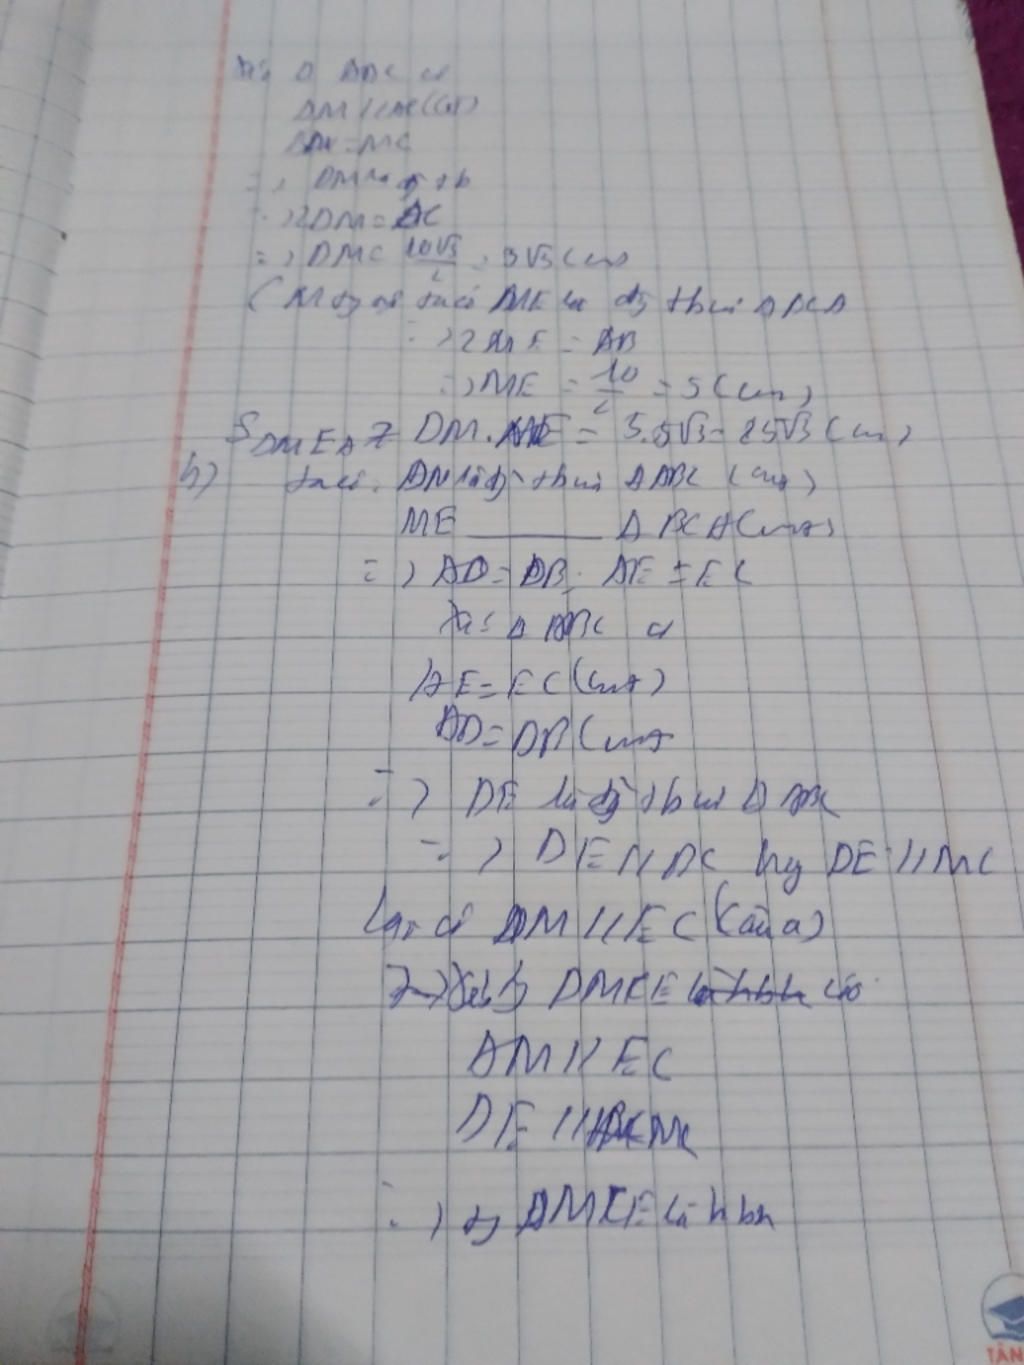 Xét Δ ABC có
DM // AC (cmt)
BM = MC
=> DM là đg tb
=> 2DM = AC
=> DM = 10√3/2 = 5√3 (cm)
CM tg tự ta có ME là đg tb của Δ BCA
=> 2ME = AB
=> ME = 10/2 = 5 (cm)
S DMEA = DM.ME = 5.5√3 = 25√3 (cm)
b) ta có: DM là đg tb của Δ ABC (cmt)
ME ______ Δ BCA (cmt)
=> AD = DB; AE = EC
Xét Δ ABC có
AE = EC (cmt)
AD = DB (cmt
=> DE là đg tb của Δ ABC
=> DE // BC hay DE // MC
Lại có DM // EC (câu a)
Xét tg DMCE là hbh có
DM // EC
DE // MC
=> tg DMCE là hbh
TÂN